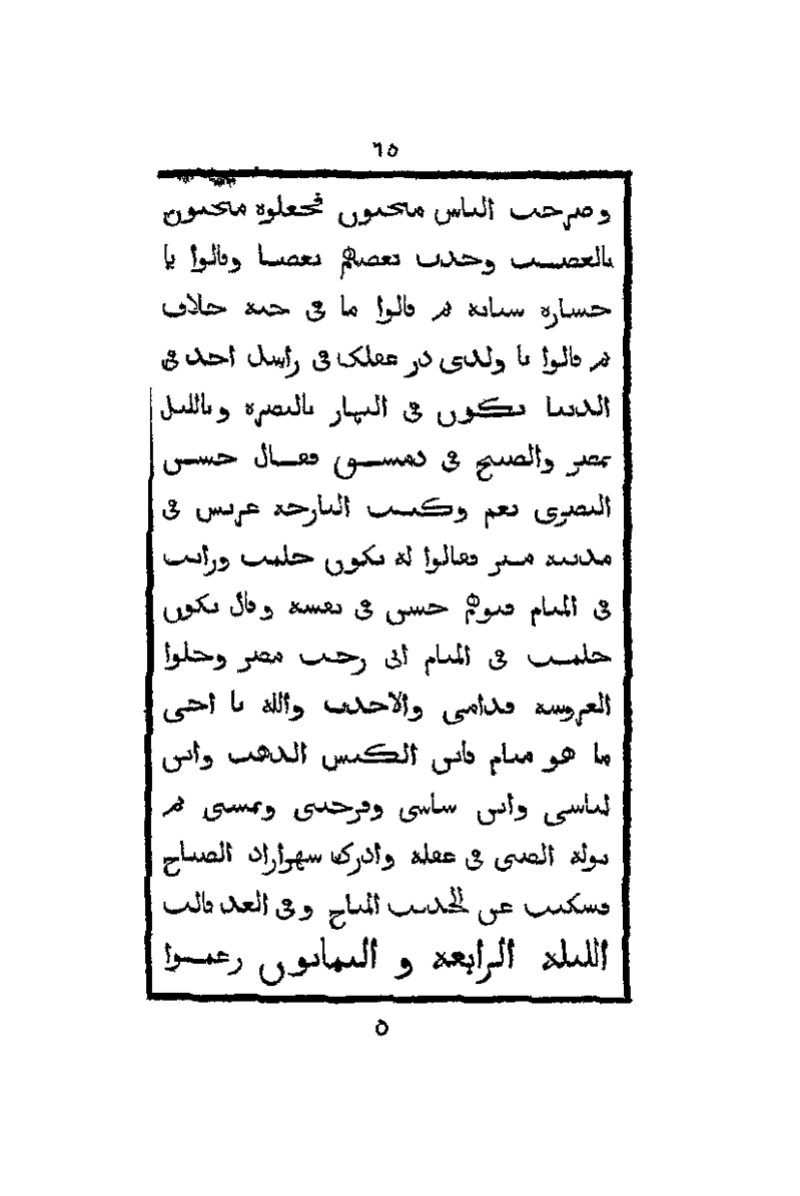 ٦٥
وصرخت الناس مجنون فجعلوه مجنون
بالغصــب وحدت بعضهم بعضــا وقالوا يا
خسارة شبابه ثم قالوا ما في جنه خلاف
ثم قالوا يا ولدي در عقلك في راسك احد في
الدنيا تكون في النهار بالبصرة وبالليل
بمصر والصبح في دمشــق فقــال حسن
البصري نعم وكنــت البارحة عريس في
مدينة مصر فقالوا له تكون حلمت ورايت
في المنام فتوهم حسن في نفسه وقال نكون
حلمــت في المنام اني رحــت مصر وجلوا
العروسه قدامي والاحدب والله يا اخي
ما هو منام فاين الكيس الذهب واين
لباسي واين شاشي وفرجيتي ونمشتي ثم
توله الصبي في عقله وادرك شهرازاد الصباح
فسكتت عن الحديث المباح وفي الغد قالت
الليلة الرابعة و الثمانون زعمــوا
٥